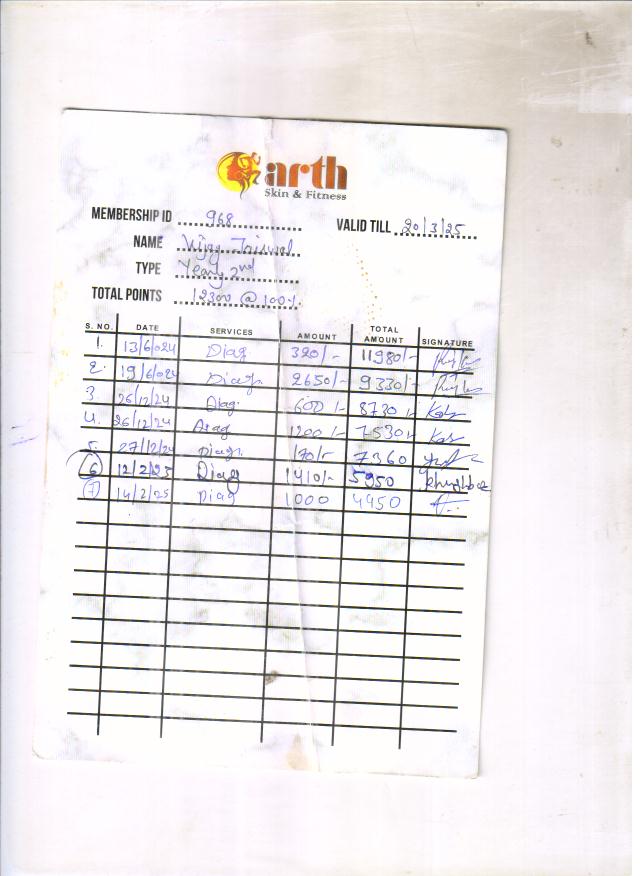 arth
Skin & Fitness
MEMBERSHIP ID 968
VALID TILL 20/3/25
NAME Vijay Jaiswal
TYPE Yearly 2nd
TOTAL POINTS 12300 @ 100%
S. NO. DATE SERVICES AMOUNT TOTAL AMOUNT SIGNATURE
1. 13/6/024 Diag. 320/- 11980/-
2. 19/6/024 Diag. 2650/- 9330/-
3. 26/12/24 Diag. 600/- 8730/-
4. 26/12/24 Diag 1200/- 7530/-
5. 27/12/24 Diag. 170/- 7360
6 12/2/25 Diag 1410/- 5950 khushboo
7 14/2/25 Diag 1000 4950